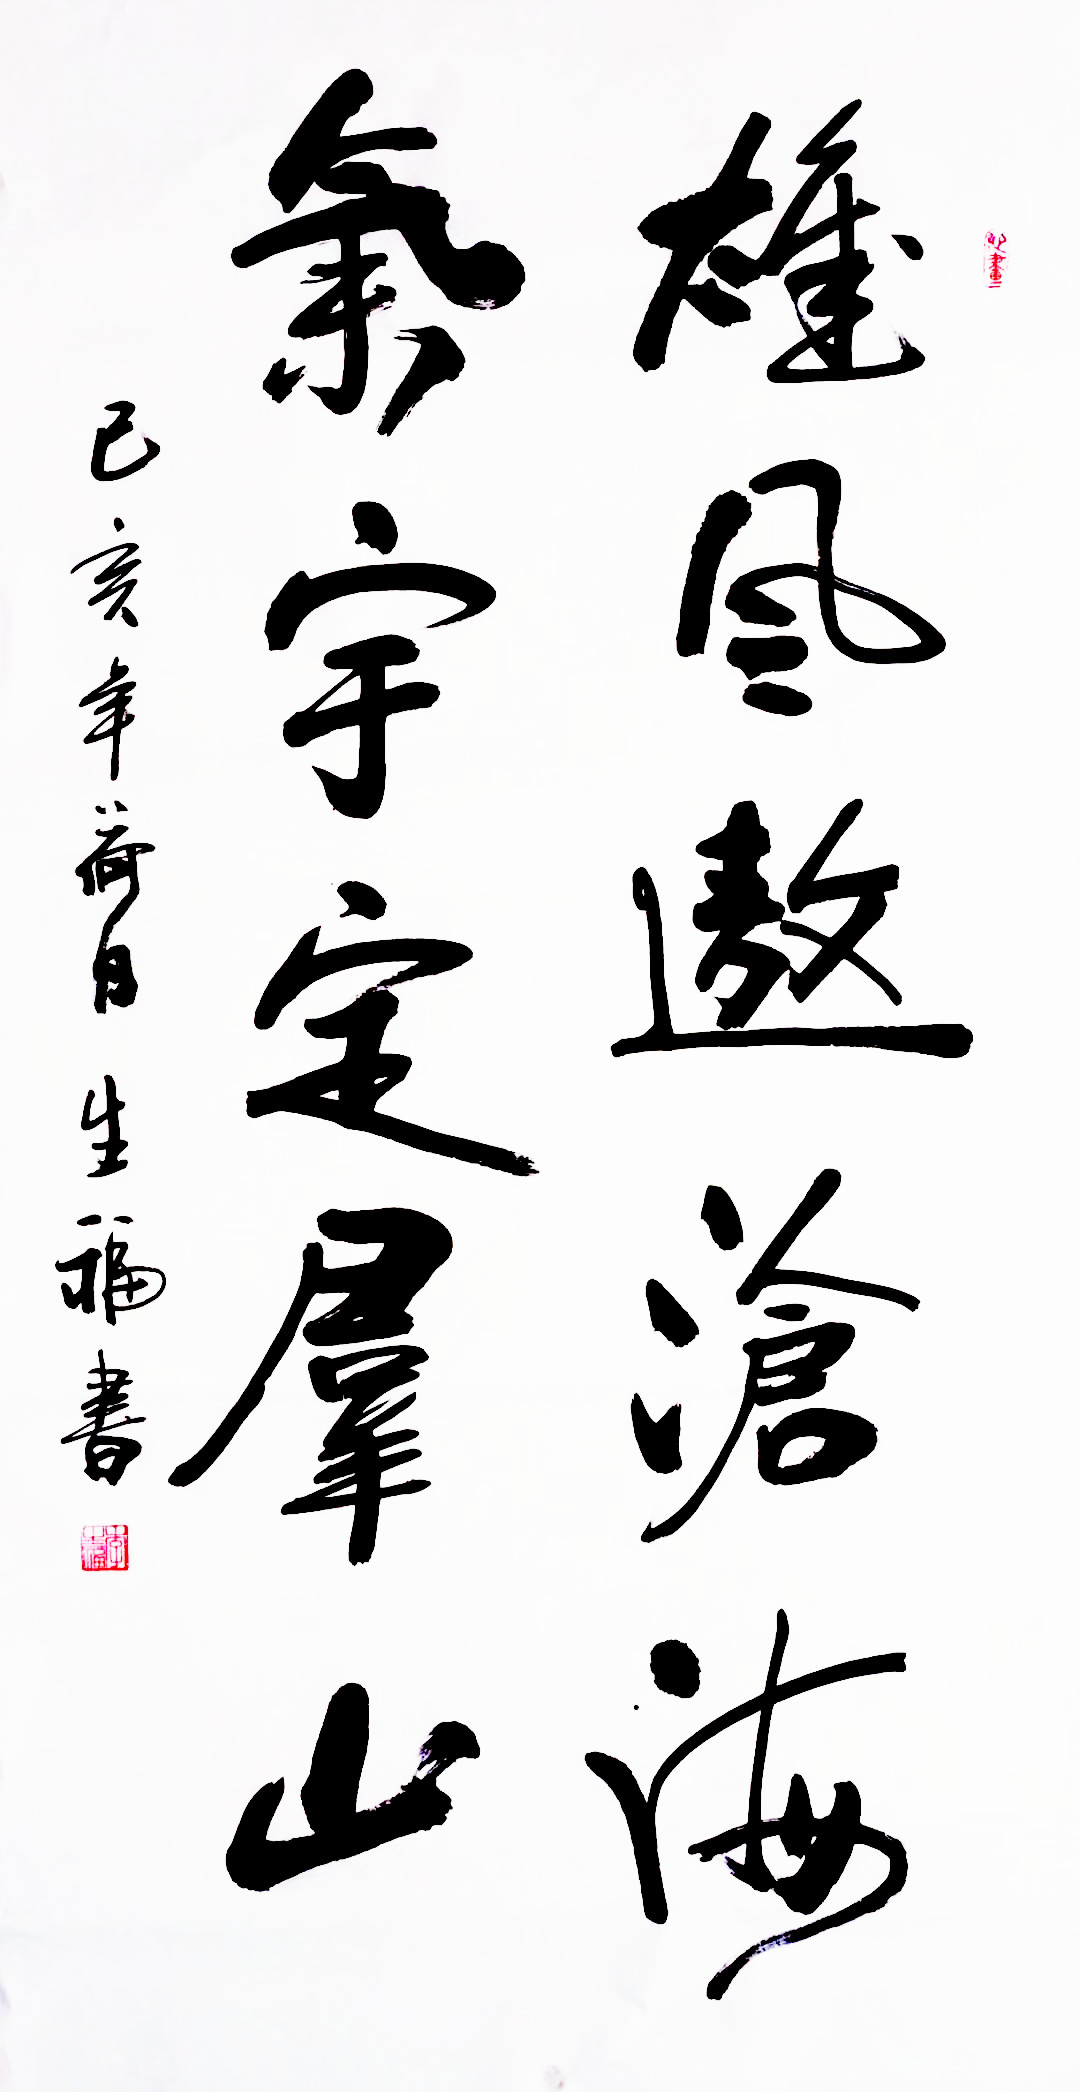 雄風遨滄海
氣宇定羣山
己亥年荷月 生福書